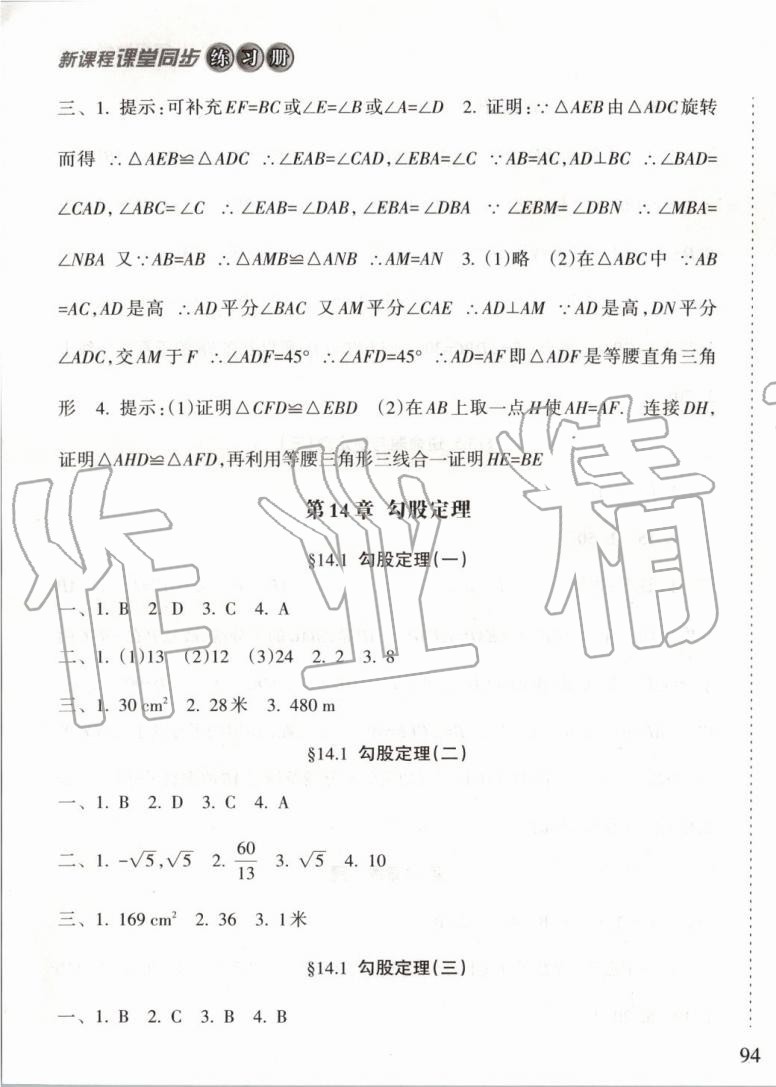 新课程课堂同步练习册
三、1. 提示:可补充EF=BC或∠E=∠B或∠A=∠D 2. 证明:∵△AEB由△ADC旋转
而得 ∴△AEB≌△ADC ∴∠EAB=∠CAD,∠EBA=∠C ∵AB=AC,AD⊥BC ∴∠BAD=
∠CAD,∠ABC=∠C ∴∠EAB=∠DAB,∠EBA=∠DBA ∵∠EBM=∠DBN ∴∠MBA=
∠NBA 又∵AB=AB ∴△AMB≌△ANB ∴AM=AN 3. (1)略 (2)在△ABC中 ∵AB
=AC,AD是高 ∴AD平分∠BAC 又AM平分∠CAE ∴AD⊥AM ∵AD是高,DN平分
∠ADC,交AM于F ∴∠ADF=45° ∴∠AFD=45° ∴AD=AF即△ADF是等腰直角三角
形 4. 提示:(1)证明△CFD≌△EBD (2)在AB上取一点H使AH=AF. 连接DH,
证明△AHD≌△AFD,再利用等腰三角形三线合一证明HE=BE
第14章 勾股定理
§14.1 勾股定理(一)
一、1. B 2. D 3. C 4. A
二、1. (1)13 (2)12 (3)24 2. 2 3. 8
三、1. 30 cm² 2. 28米 3. 480 m
§14.1 勾股定理(二)
一、1. B 2. D 3. C 4. A
二、1. -√5,√5 2. 60/13 3. √5 4. 10
三、1. 169 cm² 2. 36 3. 1米
§14.1 勾股定理(三)
一、1. B 2. C 3. B 4. B
94
作业精